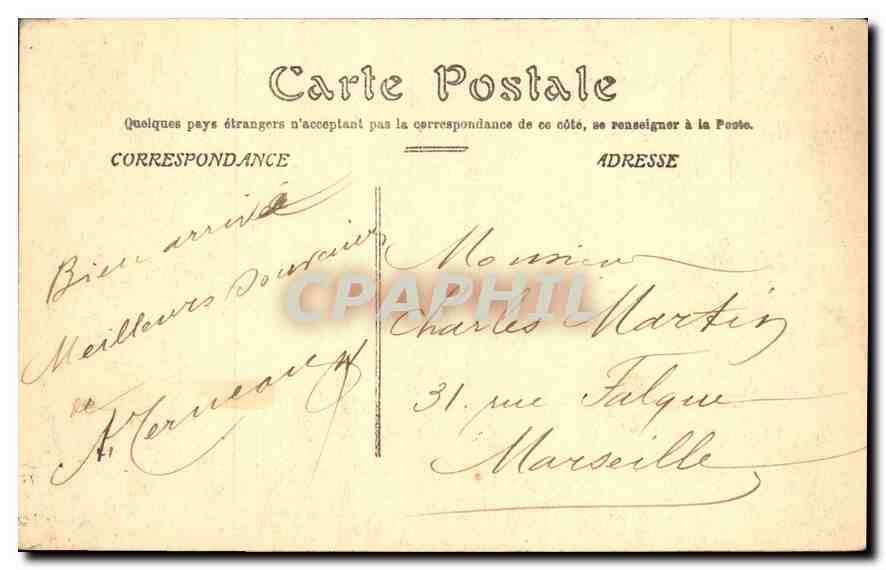 Carte Postale
Quelques pays étrangers n'acceptant pas la correspondance de ce côté, se renseigner à la Poste.
CORRESPONDANCE
ADRESSE
Bien arrivé
Meilleurs souvenirs
de
A.
Monsieur
Charles Martin
31. rue Falque
Marseille
CPAPHIL